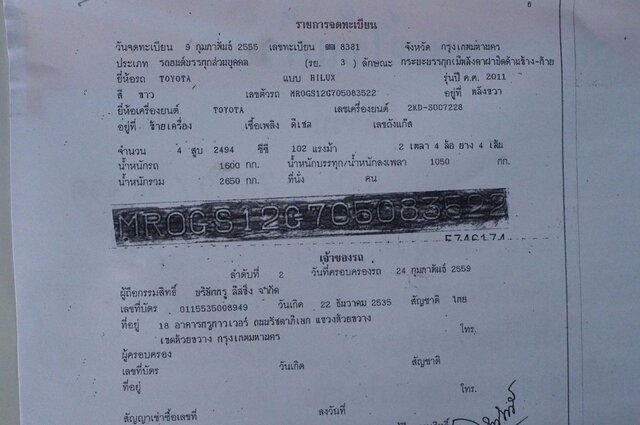 รายการจดทะเบียน
วันจดทะเบียน 9 กุมภาพันธ์ 2555 เลขทะเบียน 8381 จังหวัด กรุงเทพมหานคร
ประเภท รถยนต์บรรทุกส่วนบุคคล (รย. 3 ) ลักษณะ กระบะบรรทุก(มีหลังคาฝาปิดด้านข้าง-ท้าย
ยี่ห้อรถ TOYOTA แบบ HILUX รุ่นปี ค.ศ. 2011
สี ขาว เลขตัวรถ MROGS12G705083522 อยู่ที่ หลังขวา
ยี่ห้อเครื่องยนต์ TOYOTA เลขเครื่องยนต์ 2KD-S007228
อยู่ที่ ซ้ายเครื่อง เชื้อเพลิง ดีเซล เลขถังแก๊ส
จำนวน 4 สูบ 2494 ซีซี 102 แรงม้า 2 เพลา 4 ล้อ ยาง 4 เส้น
น้ำหนักรถ 1600 กก. น้ำหนักบรรทุก/น้ำหนักลงเพลา 1050 กก.
น้ำหนักรวม 2650 กก. ที่นั่ง คน
MROGS12G705083522
5746174
เจ้าของรถ
ลำดับที่ 2 วันที่ครอบครองรถ 24 กุมภาพันธ์ 2559
ผู้ถือกรรมสิทธิ์ บริษัทกรุ๊ ลีสซิ่ง จำกัด
เลขที่บัตร 0115535008949 วันเกิด 22 ธันวาคม 2535 สัญชาติ ไทย
ที่อยู่ 18 อาคารกรุ๊ทาวเวอร์ ถนนรัชดาภิเษก แขวงห้วยขวาง
เขตห้วยขวาง กรุงเทพมหานคร โทร.
ผู้ครอบครอง
เลขที่บัตร วันเกิด สัญชาติ
ที่อยู่ โทร.
สัญญาเช่าซื้อเลขที่ ลงวันที่